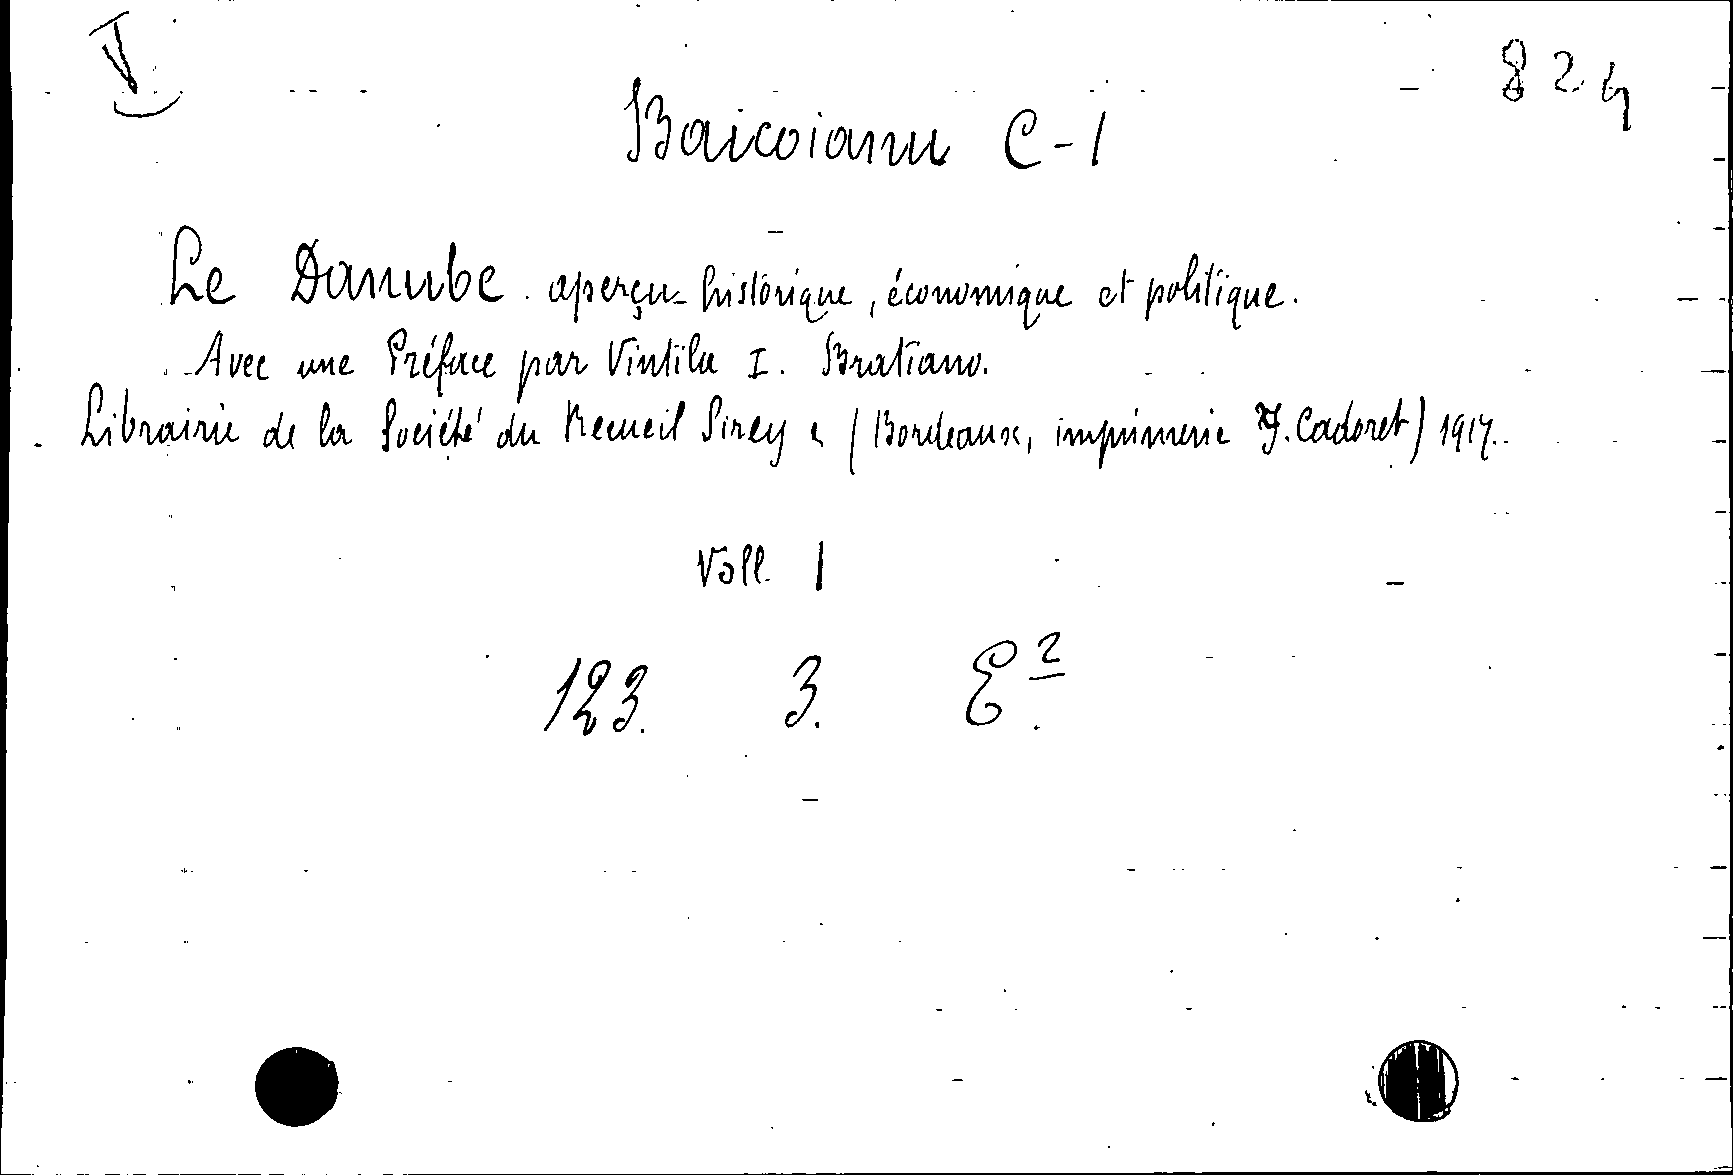 V 824
Baicoianu C-I
Le Danube. aperçu historique, économique et politique.
Avec une Préface par Vintila I. Bratiano.
Librairie de la Société du Recueil Sirey (Bordeaux, imprimerie Y. Cadoret) 1917.
Voll. 1
123. 3. E².